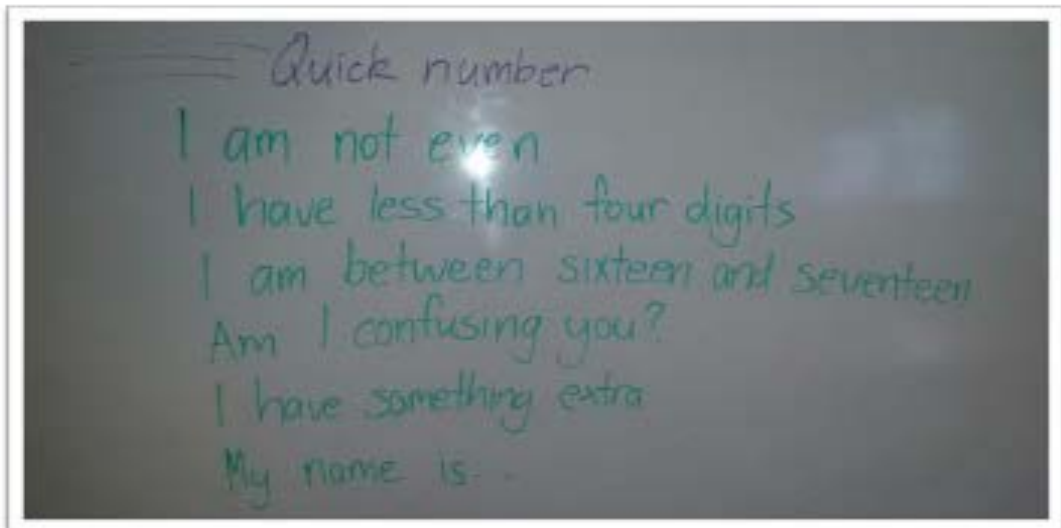 Quick number
I am not even
I have less than four digits
I am between sixteen and seventeen
Am I confusing you?
I have something extra
My name is...